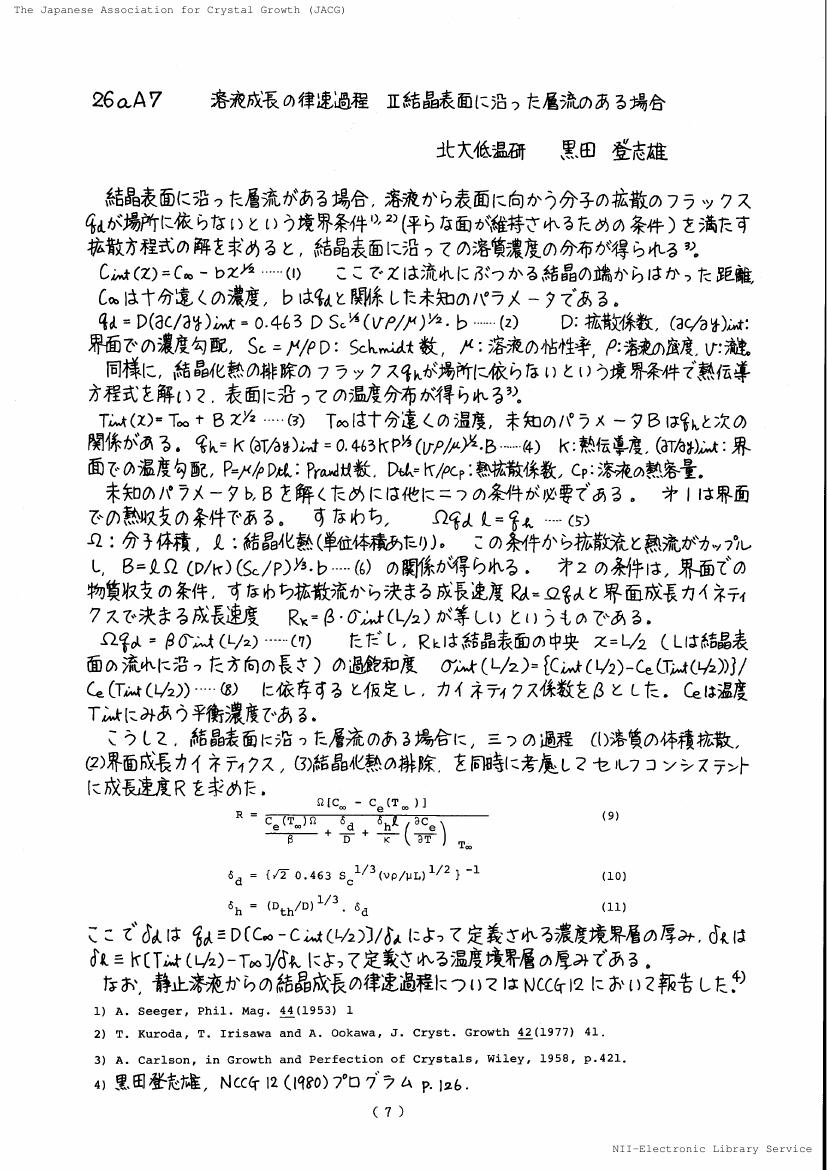 The Japanese Association for Crystal Growth (JACG)
26aA7 溶液成長の律速過程 Ⅱ結晶表面に沿った層流のある場合
北大低温研 黒田 登志雄
結晶表面に沿った層流がある場合,溶液から表面に向かう分子の拡散のフラックス
qdが場所に依らないという境界条件1),2)(平らな面が維持されるための条件)を満たす
拡散方程式の解を求めると,結晶表面に沿っての溶質濃度の分布が得られる3)。
Cint(x)=C∞-bx^1/2 ……(1) ここでxは流れにぶつかる結晶の端からはかった距離,
C∞は十分遠くの濃度,bはqdと関係した未知のパラメータである。
qd=D(∂C/∂y)int=0.463 D Sc^1/3(Vρ/μ)^1/2・b ……(2) D:拡散係数,(∂C/∂y)int:
界面での濃度勾配,Sc=μ/ρD:Schmidt数,μ:溶液の粘性率,ρ:溶液の密度,V:流速。
同様に,結晶化熱の排除のフラックスqhが場所に依らないという境界条件で熱伝導
方程式を解いて,表面に沿っての温度分布が得られる3)。
Tint(x)=T∞+Bx^1/2 ……(3) T∞は十分遠くの温度,未知のパラメータBはqhと次の
関係がある。qh=K(∂T/∂y)int=0.463KP^1/3(Vρ/μ)^1/2・B……(4) K:熱伝導度,(∂T/∂y)int:界
面での温度勾配,P=μ/ρDth:Prandtl数,Dth=K/ρCp:熱拡散係数,Cp:溶液の熱容量。
未知のパラメータb,Bを解くためには他に二つの条件が必要である。 第1は界面
での熱収支の条件である。 すなわち, Ωqd l=qh ……(5)
Ω:分子体積,l:結晶化熱(単位体積あたり)。 この条件から拡散流と熱流がカップル
し,B=lΩ(D/K)(Sc/P)^1/3・b……(6) の関係が得られる。 第2の条件は,界面での
物質収支の条件,すなわち拡散流から決まる成長速度Rd=Ωqdと界面成長カイネティ
クスで決まる成長速度 Rk=β・σint(L/2)が等しいというものである。
Ωqd=βσint(L/2)……(7) ただし,Rkは結晶表面の中央 x=L/2 (Lは結晶表
面の流れに沿った方向の長さ)の過飽和度 σint(L/2)={Cint(L/2)-Ce(Tint(L/2))}/
Ce(Tint(L/2))……(8) に依存すると仮定し,カイネティクス係数をβとした。Ceは温度
Tintにみあう平衡濃度である。
こうして,結晶表面に沿った層流のある場合に,三つの過程 (1)溶質の体積拡散,
(2)界面成長カイネティクス,(3)結晶化熱の排除,を同時に考慮してセルフコンシステント
に成長速度Rを求めた。
R = Ω[C∞ - Ce(T∞)] / { Ce(T∞)Ω/β + δd/D + δhl/K (∂Ce/∂T)T∞ } (9)
δd = {√2 0.463 Sc^1/3(νρ/μL)^1/2}^-1 (10)
δh = (Dth/D)^1/3. δd (11)
ここでδdは qd≡D[C∞-Cint(L/2)]/δdによって定義される濃度境界層の厚み,δhは
qh≡K[Tint(L/2)-T∞]/δhによって定義される温度境界層の厚みである。
なお,静止溶液からの結晶成長の律速過程についてはNCCG12において報告した。4)
1) A. Seeger, Phil. Mag. 44(1953) 1
2) T. Kuroda, T. Irisawa and A. Ookawa, J. Cryst. Growth 42(1977) 41.
3) A. Carlson, in Growth and Perfection of Crystals, Wiley, 1958, p.421.
4) 黒田登志雄, NCCG 12 (1980)プログラム p.126.
(7)
NII-Electronic Library Service